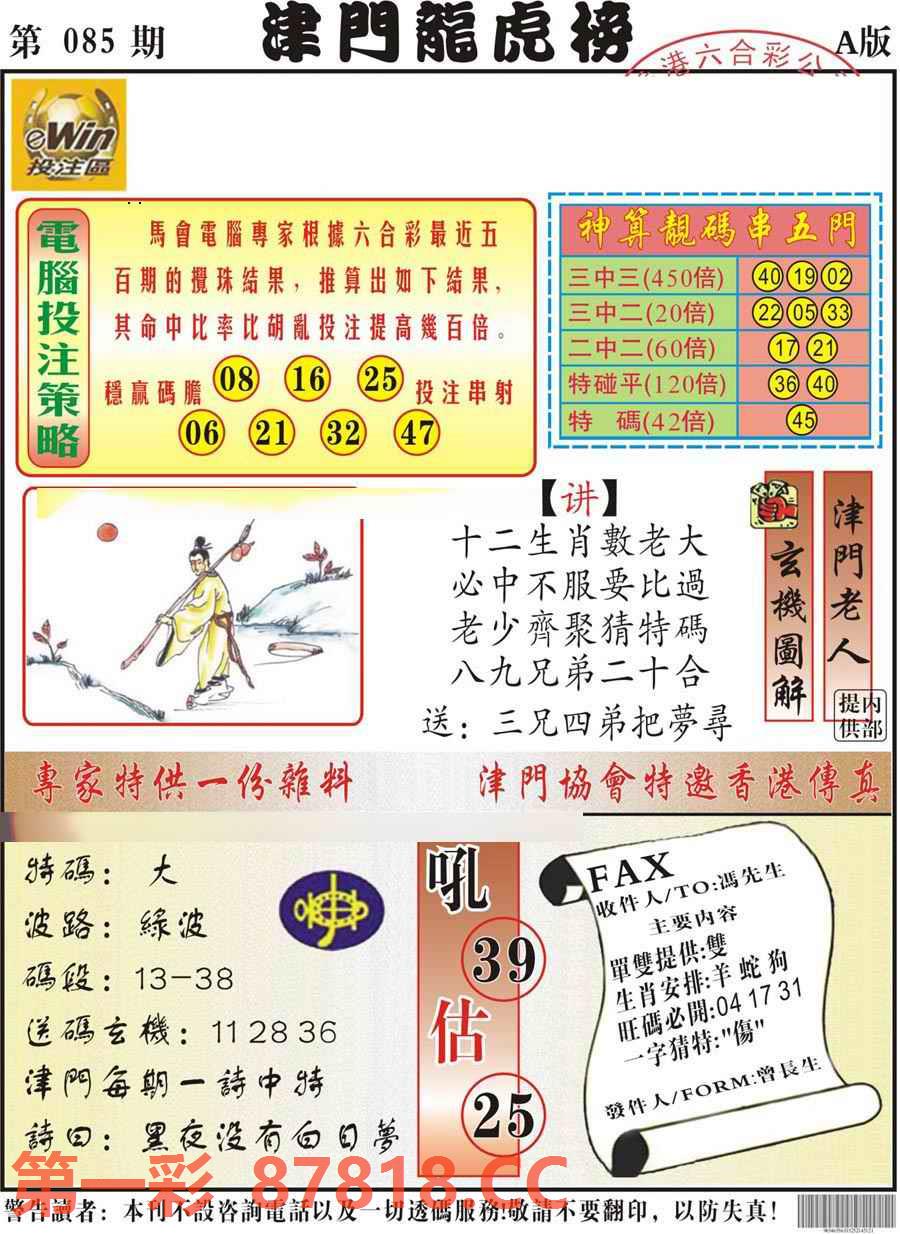 第 085 期
津門龍虎榜
A版
港六合彩公
eWin
投注區
電腦投注策略
馬會電腦專家根據六合彩最近五
百期的攪珠結果，推算出如下結果，
其命中比率比胡亂投注提高幾百倍。
穩贏碼膽 08 16 25 投注串射
06 21 32 47
神算靚碼串五門
三中三(450倍) 40 19 02
三中二(20倍) 22 05 33
二中二(60倍) 17 21
特碰平(120倍) 36 40
特 碼(42倍) 45
【讲】
十二生肖數老大
必中不服要比過
老少齊聚猜特碼
八九兄弟二十合
送：三兄四弟把夢尋
玄機圖解
津門老人
内部提供
專家特供一份雜料
津門協會特邀香港傳真
特碼：大
波路：綠波
碼段：13-38
送碼玄機：11 28 36
津門每期一詩中特
詩曰：黑夜没有白日夢
吼
39
估
25
FAX
收件人/TO:馮先生
主要内容
單雙提供:雙
生肖安排:羊 蛇 狗
旺碼必開:04 17 31
一字猜特:"傷"
發件人/FORM:曾長生
第一彩 87818.CC
警告讀者：本刊不設咨詢電話以及一切透碼服務!敬請不要翻印，以防失真！